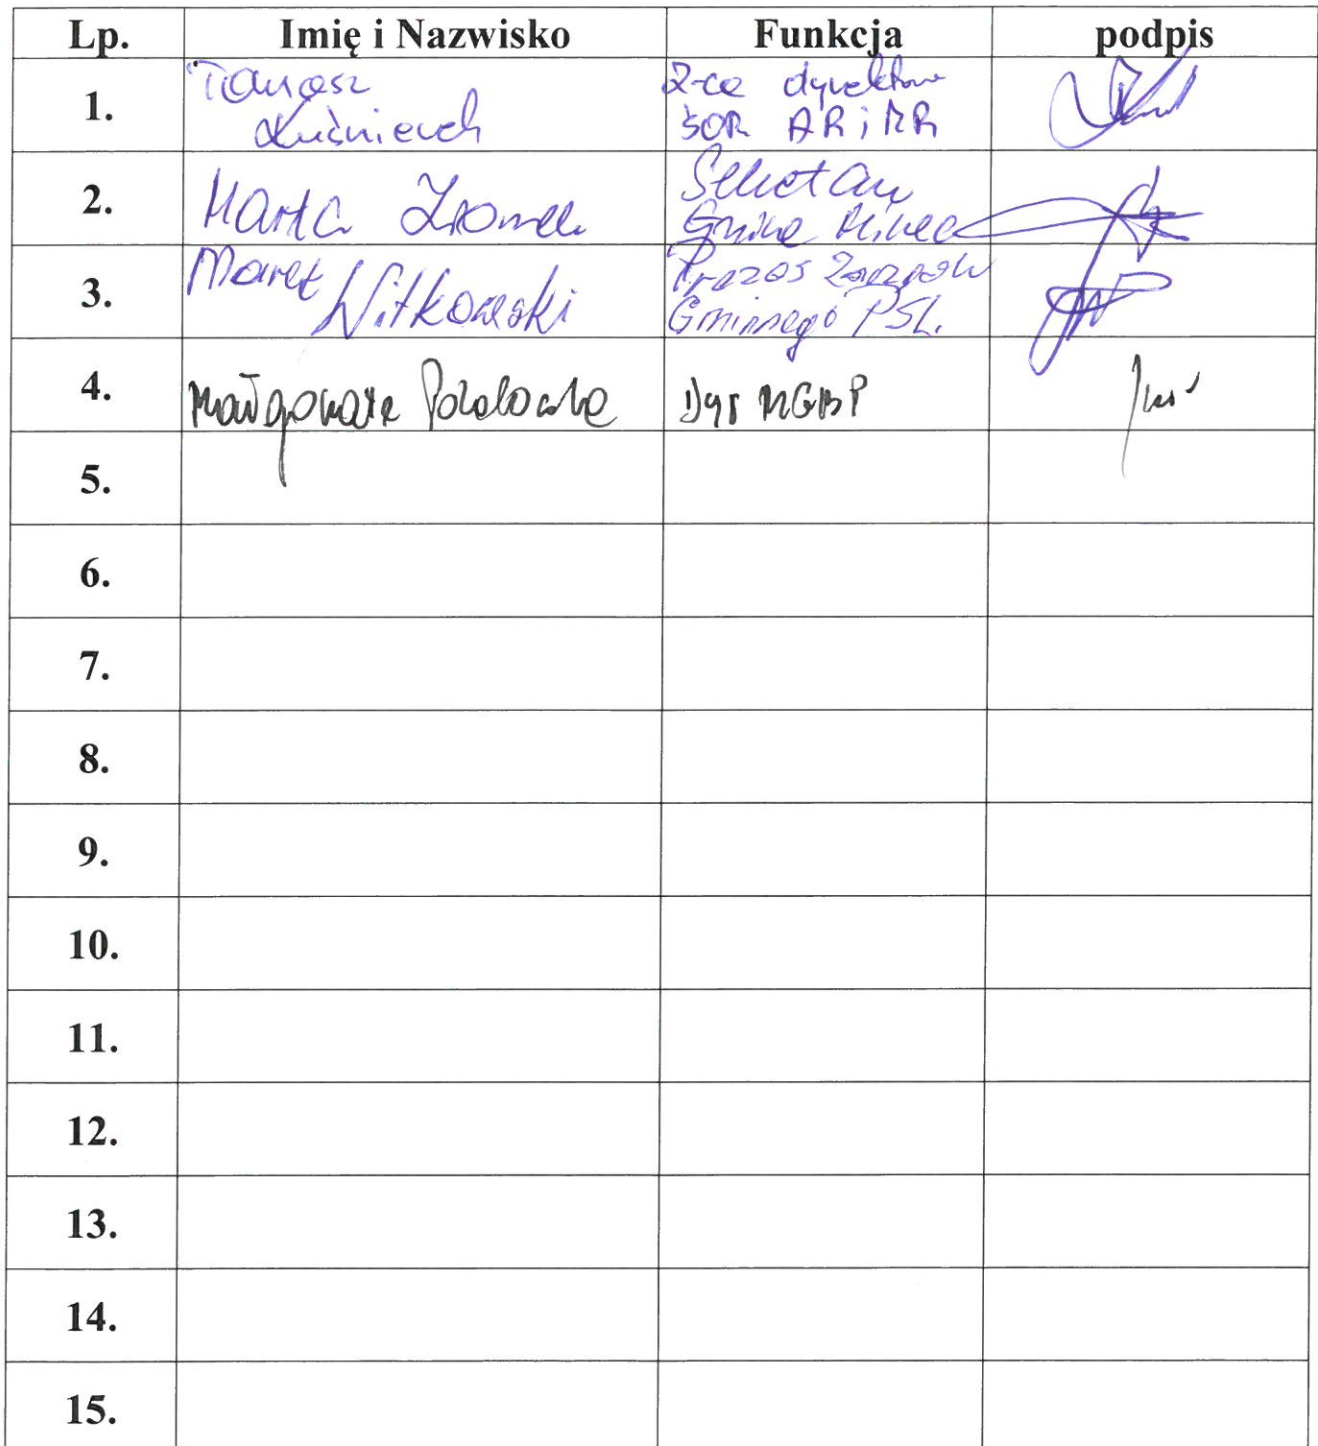 Lp. Imię i Nazwisko Funkcja podpis
1. Tomasz
Z-ca dyrektora
ŚOR ARiMR
2. Marta
Sekretarz
Gminy
3. Marek Witkowski
Prezes Zarządu
Gminnego PSL.
4. Małgorzata Dyr MGBP
5.
6.
7.
8.
9.
10.
11.
12.
13.
14.
15.